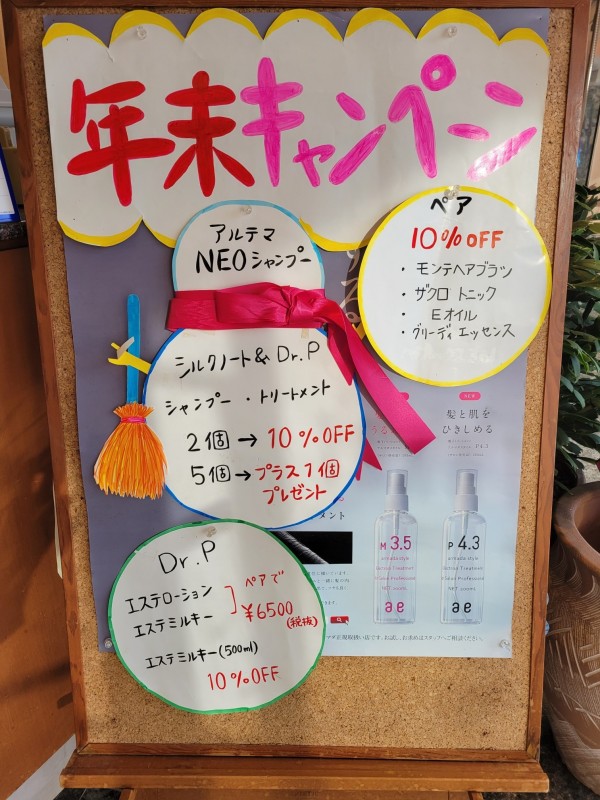 年末キャンペーン
ペア
10%OFF
・モンテヘアブラッツ
・ザクロ トニック
・Eオイル
・グリーディ エッセンス
アルテマ
NEOシャンプー
シルクノート& Dr.P
シャンプー・トリートメント
2個→10%OFF
5個→プラス1個
プレゼント
Dr.P
エステローション
エステミルキー
ペアで
¥6500
(税抜)
エステミルキー(500ml)
10%OFF
NEW
髪と肌を
ひきしめる
M 3.5
ae
P 4.3
ae